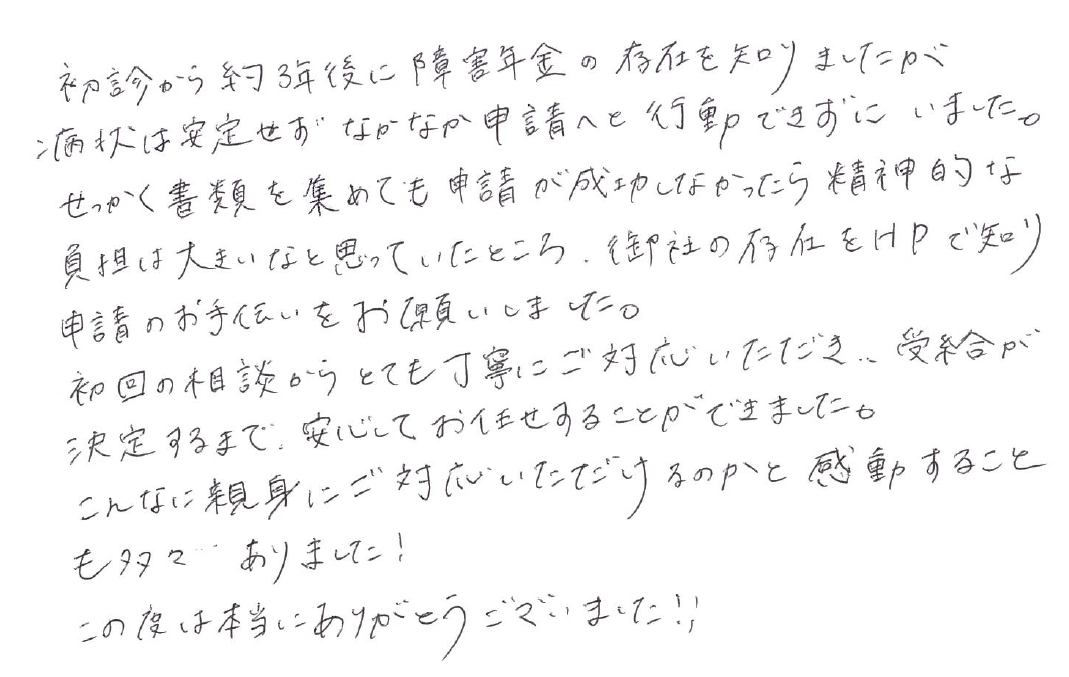 初診から約3年後に障害年金の存在を知りましたが
病状は安定せずなかなか申請へと行動できずにいました。
せっかく書類を集めても申請が成功しなかったら精神的な
負担は大きいなと思っていたところ、御社の存在をHPで知り
申請のお手伝いをお願いしました。
初回の相談からとても丁寧にご対応いただき、受給が
決定するまで、安心してお任せすることができました。
こんなに親身にご対応いただけるのかと感動すること
も多々…ありました!
この度は本当にありがとうございました!!